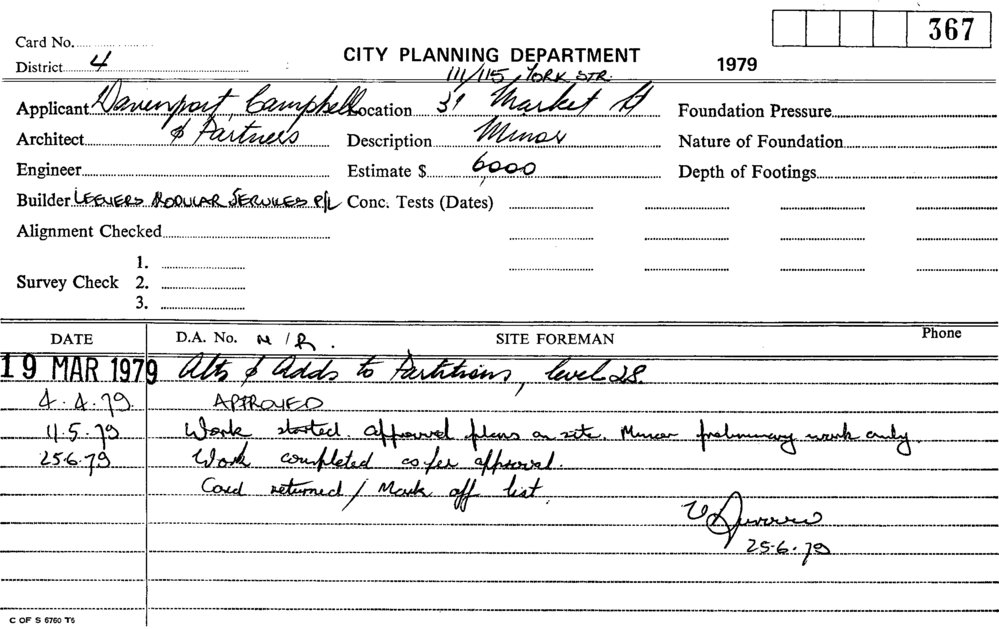 367
Card No.
CITY PLANNING DEPARTMENT
1979
District 4
111/115, YORK STR.
Applicant Davenport, Campbell Location 31 Market St Foundation Pressure
Architect & Partners Description Minor Nature of Foundation
Engineer Estimate $ 6,000 Depth of Footings
Builder LEEMERS MODULAR SERVICES P/L Conc. Tests (Dates)
Alignment Checked
1.
Survey Check 2.
3.
DATE D.A. No. N/R. SITE FOREMAN Phone
19 MAR 1979 Alts & Adds to Partitions, level 28.
4.4.79. APPROVED
11.5.79 Work started. Approved plans on site. Minor preliminary work only.
25.6.79 Work completed as per approval.
Card returned / Mark off list.
25.6.79
C OF S 6760 T5